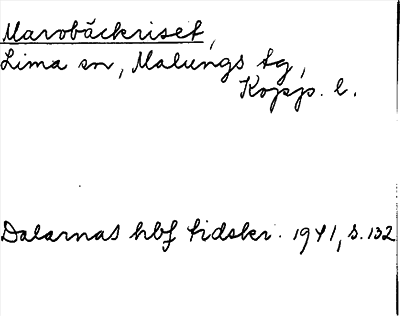 Marobäckriset,
Lima sn, Malungs tg,
Kopp. l.
Dalarnas hbf tidskr. 1941, s. 132